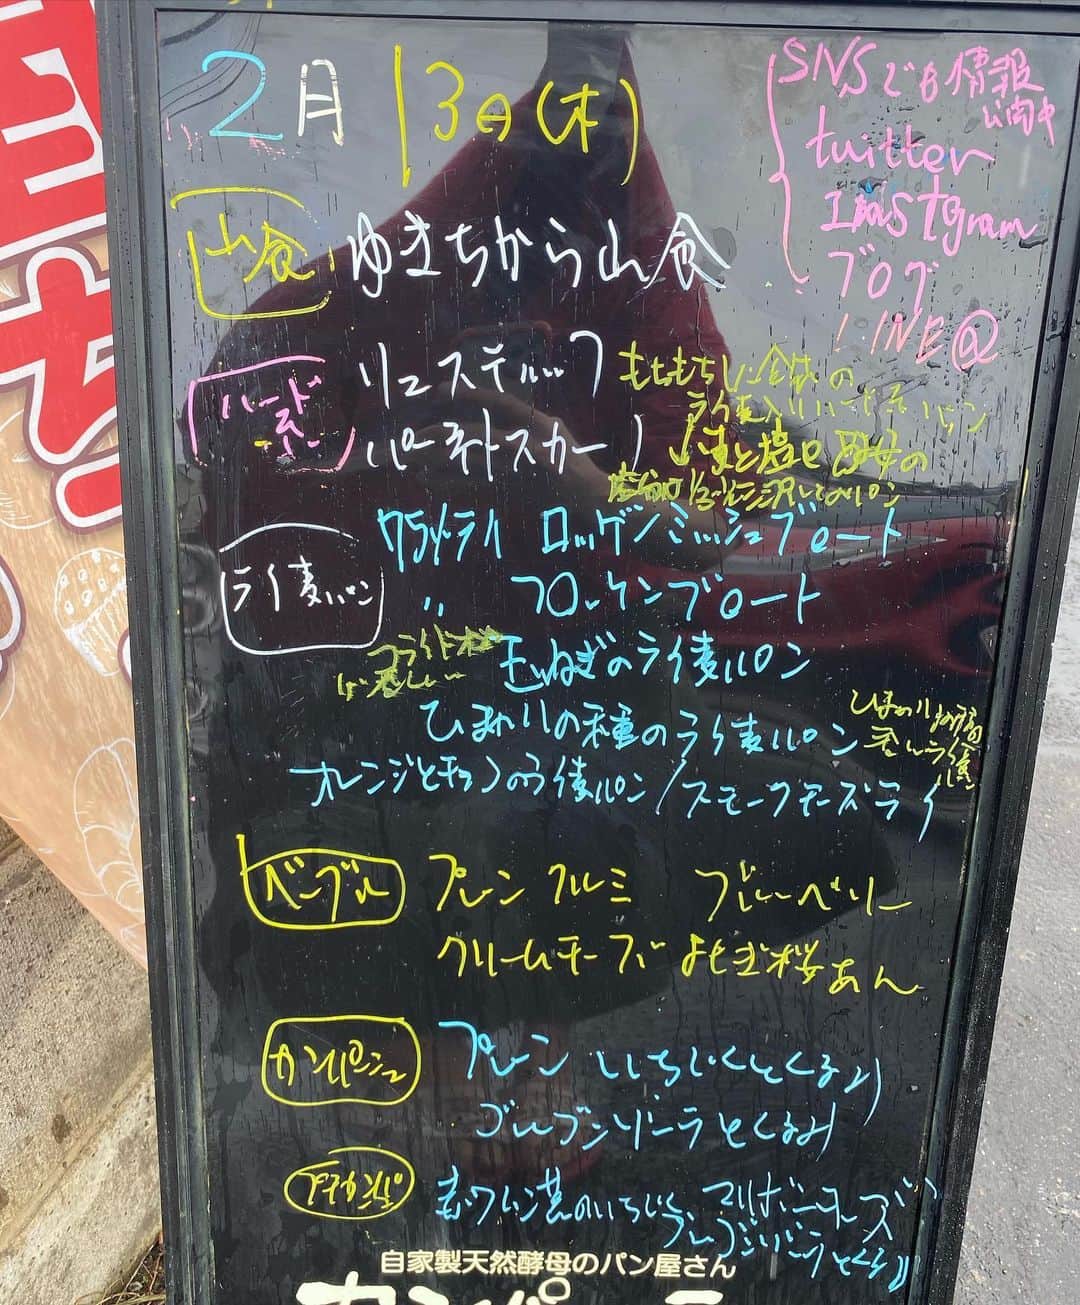 2月13日(木)
SNSでも情報
公開中
twitter
Instagram
ブログ
LINE@
山食 ゆきちから山食
ハード系 リュスティック もちもちした食感の
ライ麦入りハード系のパン
パーネトスカーノ
75%ライ ロッゲンミッシュブロート
ライ麦パン 〃 フロッケンブロート
玉ねぎのライ麦パン
ひまわりの種のライ麦パン
ひまわりの種
ライ麦
パン
オレンジとチョコのライ麦パン/スモークチーズライ
ベーグル プレーン クルミ ブルーベリー
クリームチーズ よもぎ桜あん
カンパーニュ プレーン いちじくとくるみ
ゴルゴンゾーラとくるみ
プチカンパ 赤ワイン煮のいちじく マリボーチーズ
ゴルゴンゾーラとくるみ
自家製天然酵母のパン屋さん